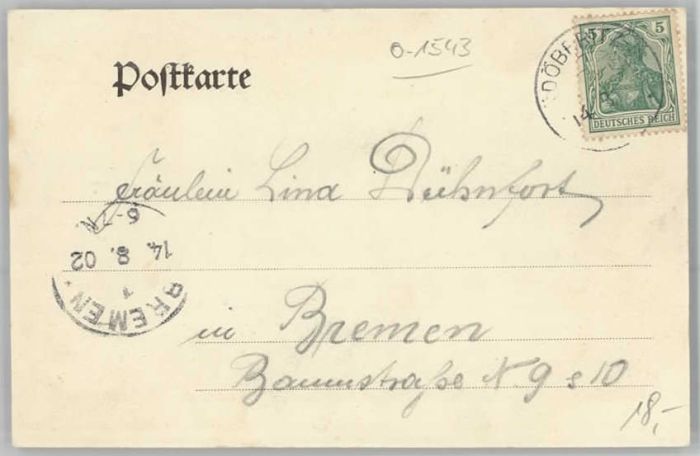 0-1543
Postkarte
DÖBERITZ
14. 8.
5 5
DEUTSCHES REICH
Fräulein Lina Dühnfort
BREMEN
1
14. 8. 02
6-7 N.
in Bremen
Baumstraße N 9 & 10
18,-